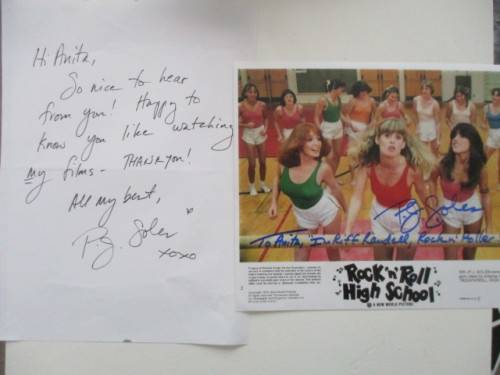 Hi Anita,
So nice to hear
from you! Happy to
know you like watching
my films - THANK YOU!
All my best,
P.J. Soles
xoxo
P.J. Soles
To Anita, "I'm Riff Randell, Rock n' Roller
Rock 'n' Roll
High School
A NEW WORLD PICTURE